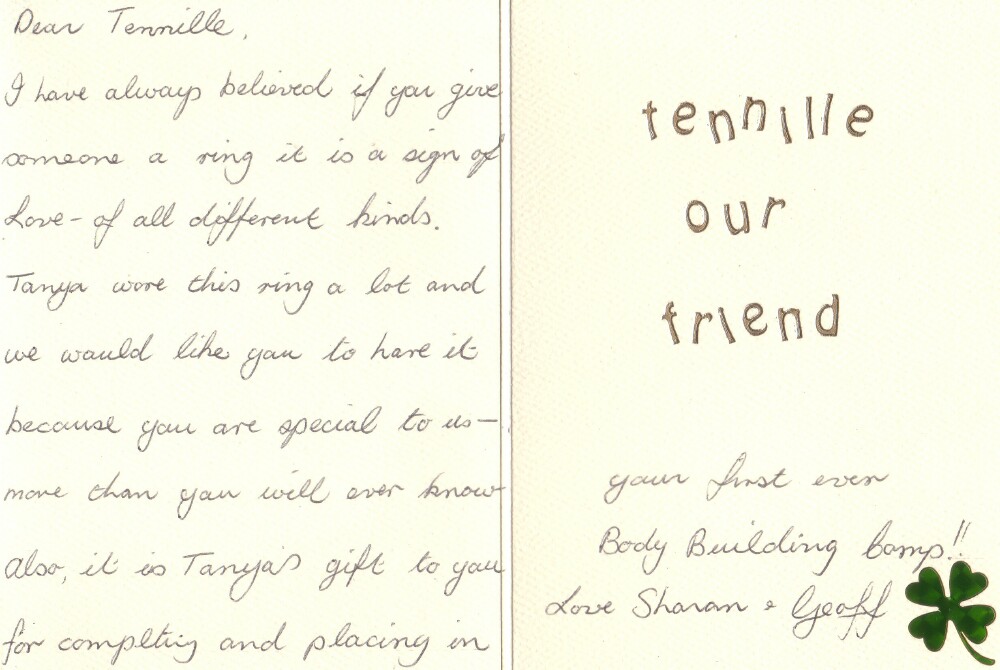 Dear Tennille,
I have always believed if you give
someone a ring it is a sign of
Love - of all different kinds.
Tanya wore this ring a lot and
we would like you to have it
because you are special to us -
more than you will ever know
Also, it is Tanya's gift to you
for complting and placing in
tennille
our
friend
your first ever
Body Building Comp!!
Love Sharan & Geoff